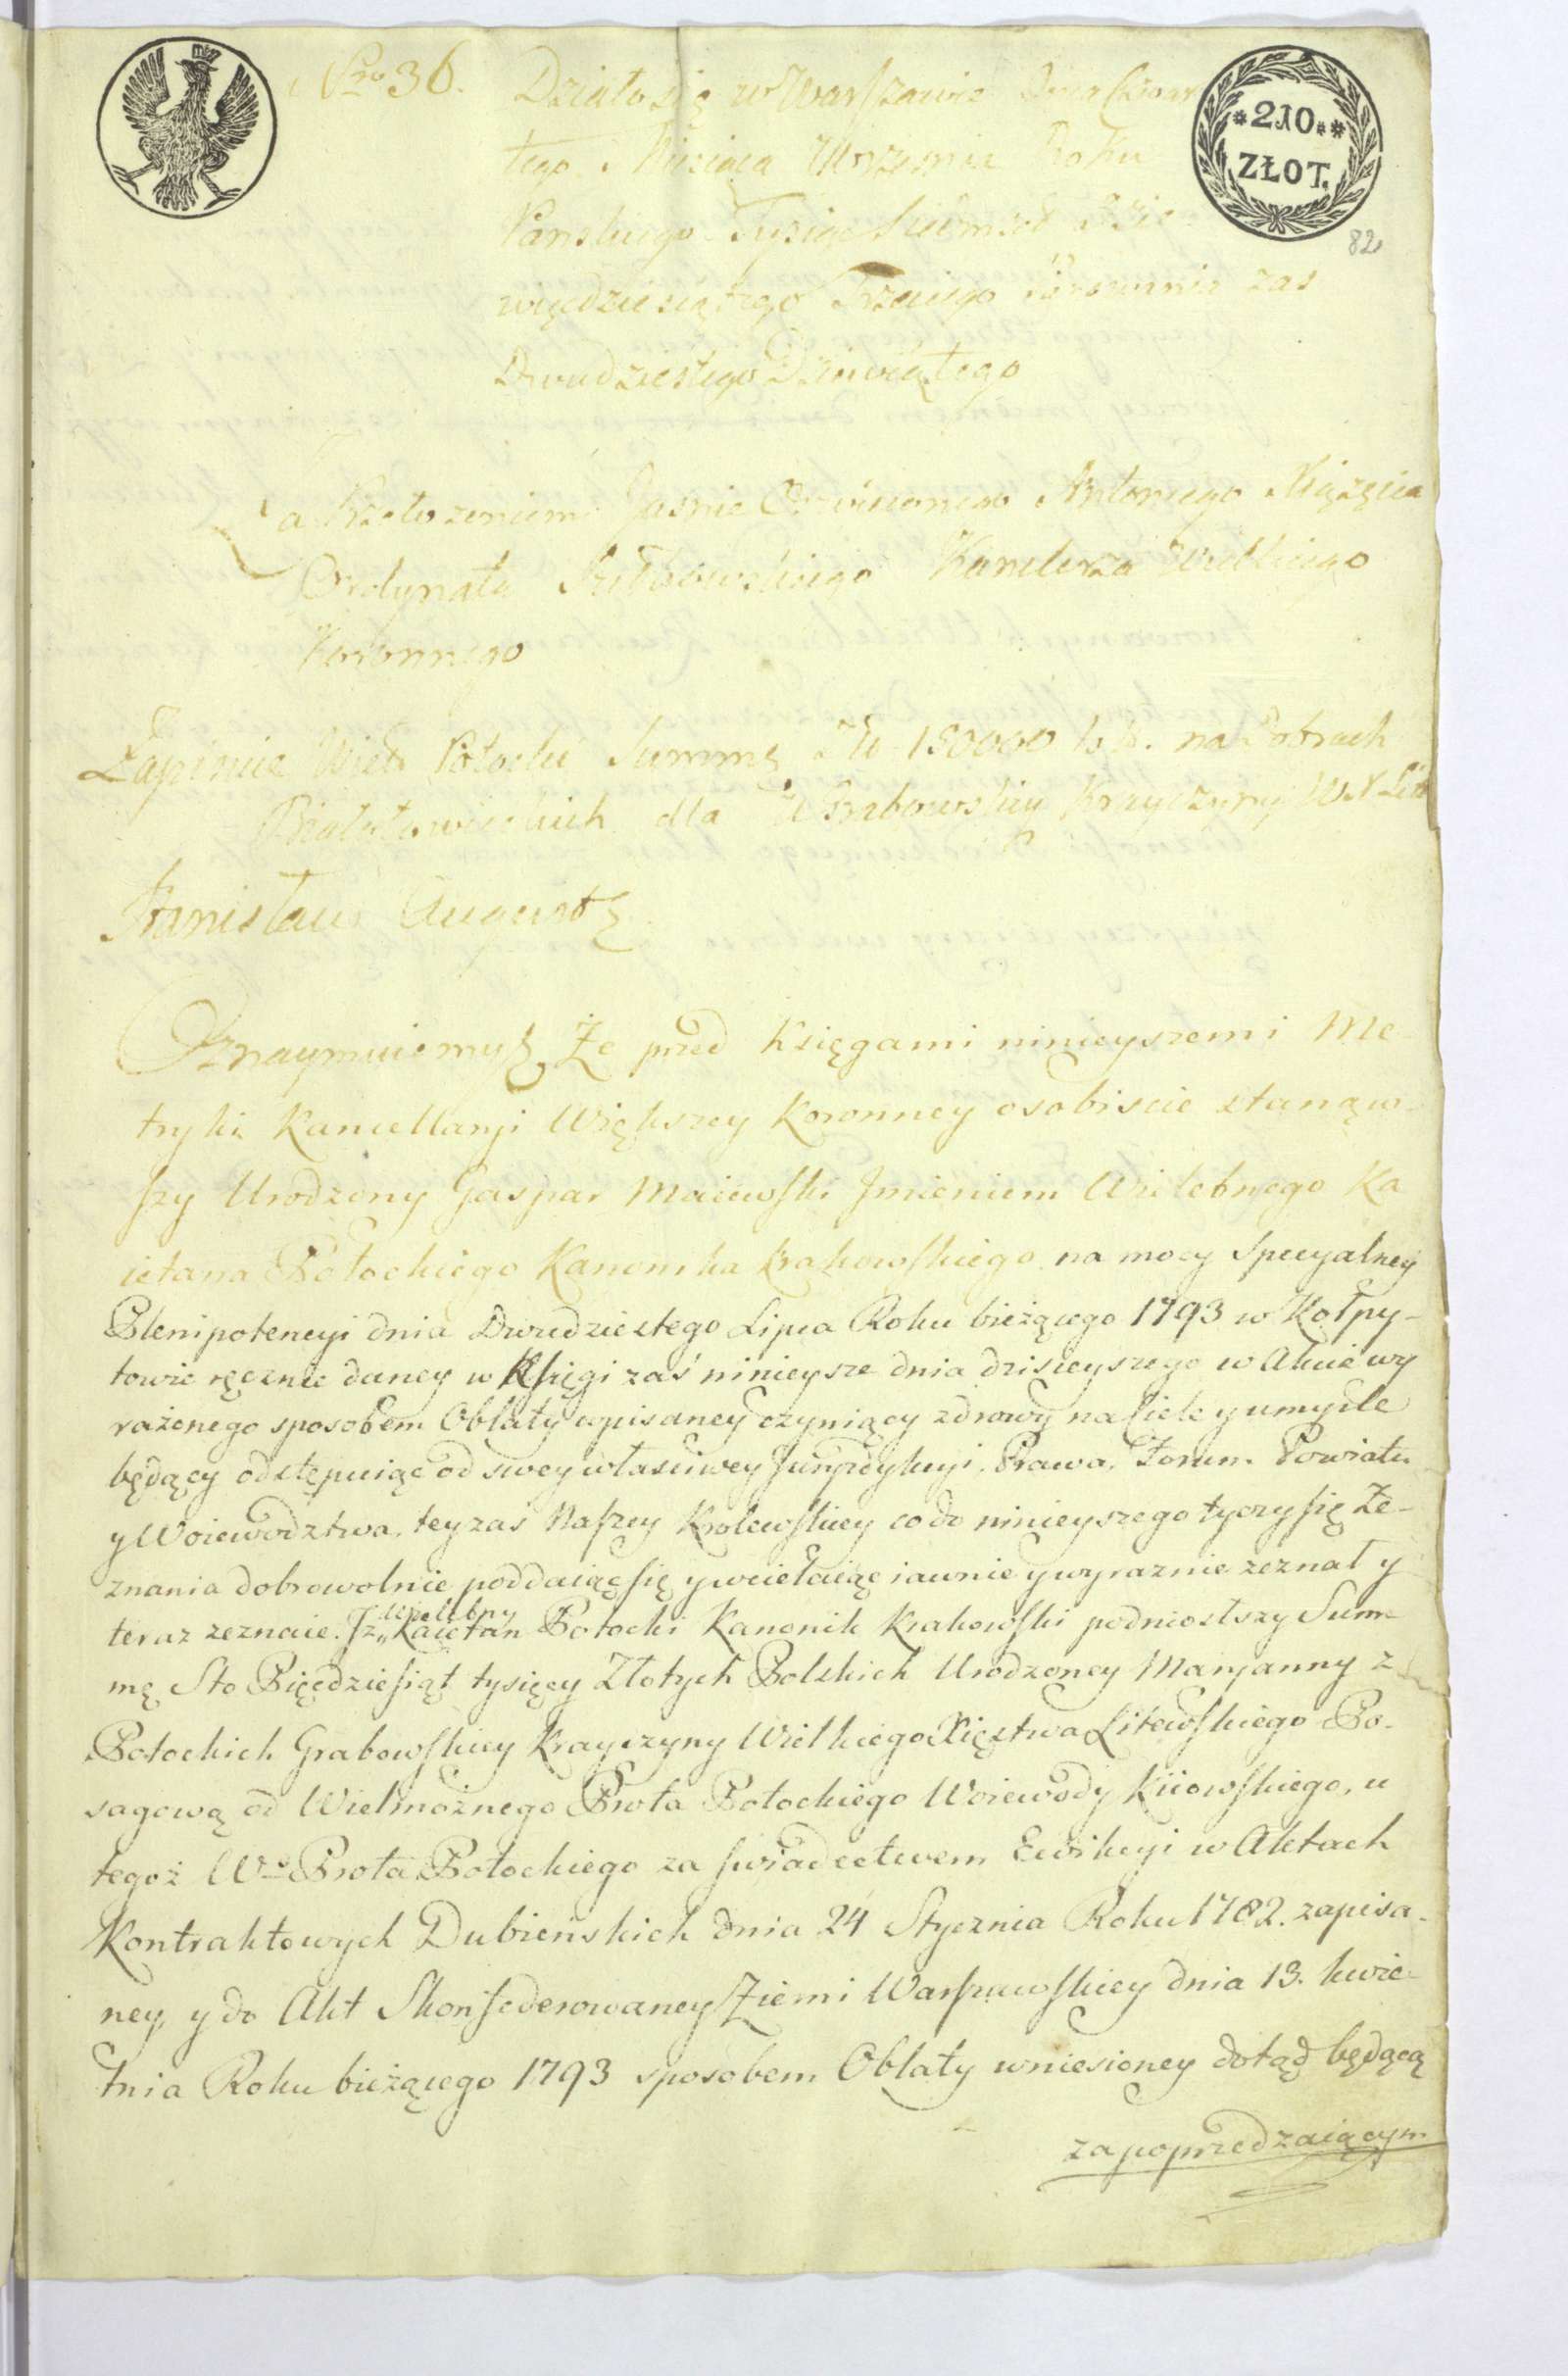 Nro 36.
Działo się w Warszawie Dnia Czwar
tego Miesiąca Września Roku
Panskiego Tysiąc Siedmset Dzie
więdziesiątego Trzeciego Panowania zas
Dwudziestego Dziewiątego
*210**
ZŁOT.
82
Za Przełozeniem Jasnie Oswieconego Antoniego Xiążęcia
Ordynata Sułkowskiego Kanclerza Wielkiego
Koronnego
Zapisuie Wiel: Potocki Summę Zł: 150000 na Dobrach
dla W Grabowskiey Krayczyny W X Lit
Stanisław August
Oznaymuiemy Że przed Księgami ninieyszemi Me
tryki Kancellaryi Większey Koronney osobiscie stanąw-
szy Urodzony Gaspar Maiewski Imieniem Wielebnego Ka
ietana Potockiego Kanonika Krakowskiego na mocy Specyalney
Plenipotencyi dnia Dwudziestego Lipca Roku bieżącego 1793 w Kołpy-
towie ręcznie daney w Księgi zaś ninieysze dnia dzisieyszego w Akcie wy
rażonego sposobem Oblaty wpisaney czyniący zdrowy na Ciele y umysle
będący odstępuiąc od swey własciwey Juryzdykcyi. Prawa, Forum. Powiatu
y Woiewodztwa, tey zas Naszey Krolewskiey co do ninieyszego tyczy się Ze-
znania dobrowolnie poddaiąc się y wcielaiąc iawnie y wyraznie zeznał y
teraz zeznaie. Iz Wielebny Kaietan Potocki Kanonik Krakowski podniosłszy Sum-
mę Sto Pięcdziesiąt tysięcy Złotych Polskich Urodzoney Maryanny z
Potockich Grabowskiey Krayczyny Wielkiego Xięstwa Litewskiego Po-
sagową od Wielmożnego Prota Potockiego Woiewody Kiiowskiego, u
tegoż Wo Prota Potockiego za swiadectwem Ewikcyi w Aktach
Kontraktowych Dubieńskich dnia 24 Stycznia Roku 1782. zapisa-
ney, y do Akt Skonfederowaney Ziemi Warszawskiey dnia 13. kwie-
tnia Roku bieżącego 1793 sposobem Oblaty wniesioney dotąd będącą
za poprzedzaiącym